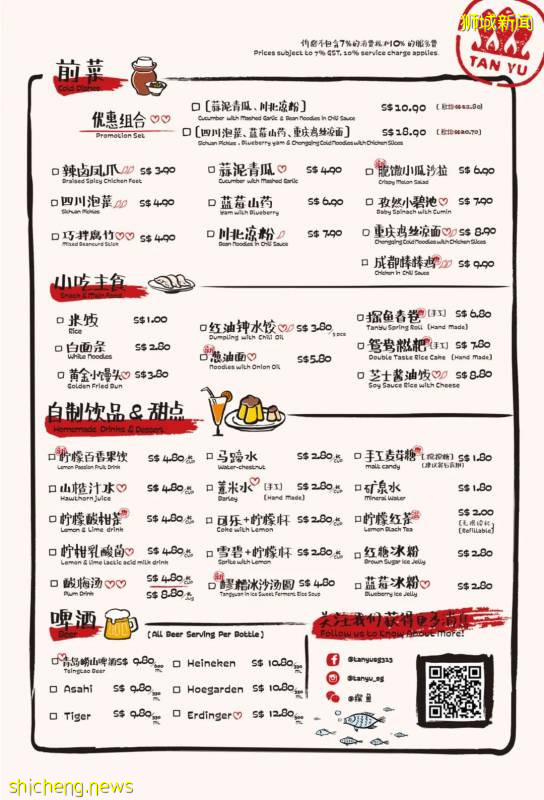 狮城新闻
TAN YU
价格不包含7%的消费税和10%的服务费
Prices subject to 7% GST, 10% service charge applies.
前菜
Cold Dishes
优惠组合
Promotion Set
[蒜泥青瓜、川北凉粉] S$10.90
Cucumber with Mashed Garlic & Bean Noodles in Chili Sauce
[四川泡菜、蓝莓山药、重庆鸡丝凉面] S$18.90 (原价S$20.70)
Sichuan Pickles, Blueberry yam & Chongqing Cold Noodles with Chicken Slices
辣卤凤爪 S$3.90
Braised Spicy Chicken Feet
四川泡菜 S$4.90
Sichuan Pickles
巧拌腐竹 S$4.90
Mixed Beancurd Stick
蒜泥青瓜 S$4.90
Cucumber with Mashed Garlic
蓝莓山药 S$6.90
Yam with Blueberry
川北凉粉 S$7.90
Bean Noodles in Chili Sauce
小瓜沙拉 S$6.90
Crispy Melon Salad
孜然小碧池 S$7.90
Baby Spinach with Cumin
重庆鸡丝凉面 S$8.90
Chongqing Cold Noodles with Chicken Slices
成都棒棒鸡 S$9.90
Chicken in Chili Sauce
小吃主食
Snack & Main Food
米饭 S$1.00
Rice
白面条 S$2.80
White Noodles
黄金小馒头 S$3.80
Golden Fried Bun
红油钟水饺 S$3.80 5 pcs
Dumpling with Chili Oil
葱油面 S$5.80
Noodles with Onion Oil
探鱼春卷 (手工) S$6.80
TanYu Spring Roll (Hand Made)
鸳鸯糍粑 (手工) S$7.80
Double Taste Rice Cake (Hand Made)
芝士酱油饭 S$8.80
Soy Sauce Rice with Cheese
自制饮品 & 甜点
Homemade Drinks & Dessert
柠檬百香果饮 S$4.80 杯 CUP
Lemon Passion Fruit Drink
山楂汁 S$4.80 杯 CUP
Hawthorn juice
柠檬酸柑茶 S$4.80 杯 CUP
Lemon & Lime drink
柠柑乳酸菌 S$4.80 杯 CUP
Lemon & lime lactic acid milk drink
酸梅汤 S$4.80 杯 CUP
Plum Drink S$8.80 Jug
马蹄水 S$2.80 杯 CUP
Water-chestnut
薏米水 (手工) S$2.80 杯 CUP
Barley (Hand Made)
可乐+柠檬杯 S$2.80 杯 CUP
Coke with Lemon
雪碧+柠檬杯 S$2.80 杯 CUP
Sprite with Lemon
醪糟冰沙汤圆 S$4.80
Tangyuan in Ice Sweet Ferment Rice Soup
手工麦芽糖 S$1.80
malt candy
矿泉水 S$1.80
Mineral Water
柠檬红茶 S$2.00
Lemon Black Tea (Refillable)
红糖冰粉 S$2.80
Brown Sugar Ice Jelly
蓝莓冰粉 S$2.80
Blueberry Ice Jelly
啤酒
Beer
(All Beer Serving Per Bottle)
青岛崂山啤酒 S$9.80
Tsingtao Beer
Asahi S$9.80
Tiger S$9.80
Heineken S$10.80
Hoegarden S$10.80
Erdinger S$12.80
关注我们获得更多消息!
Follow us to Know About More!
@tanyusg313
@tanyu_sg
@探鱼
shicheng.news